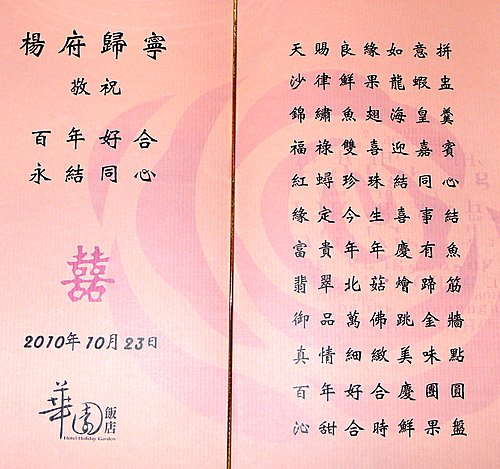 楊府歸寧
敬祝
百年好合
永結同心
囍
2010年10月23日
華園飯店
Hotel Holiday Garden
天賜良緣如意拼
沙律鮮果龍蝦盅
錦繡魚翅海皇羹
福祿雙喜迎嘉賓
紅蟳珍珠結同心
緣定今生喜事結
富貴年年慶有魚
翡翠北菇燴蹄筋
御品萬佛跳金牆
真情細緻美味點
百年好合慶團圓
沁甜合時鮮果盤